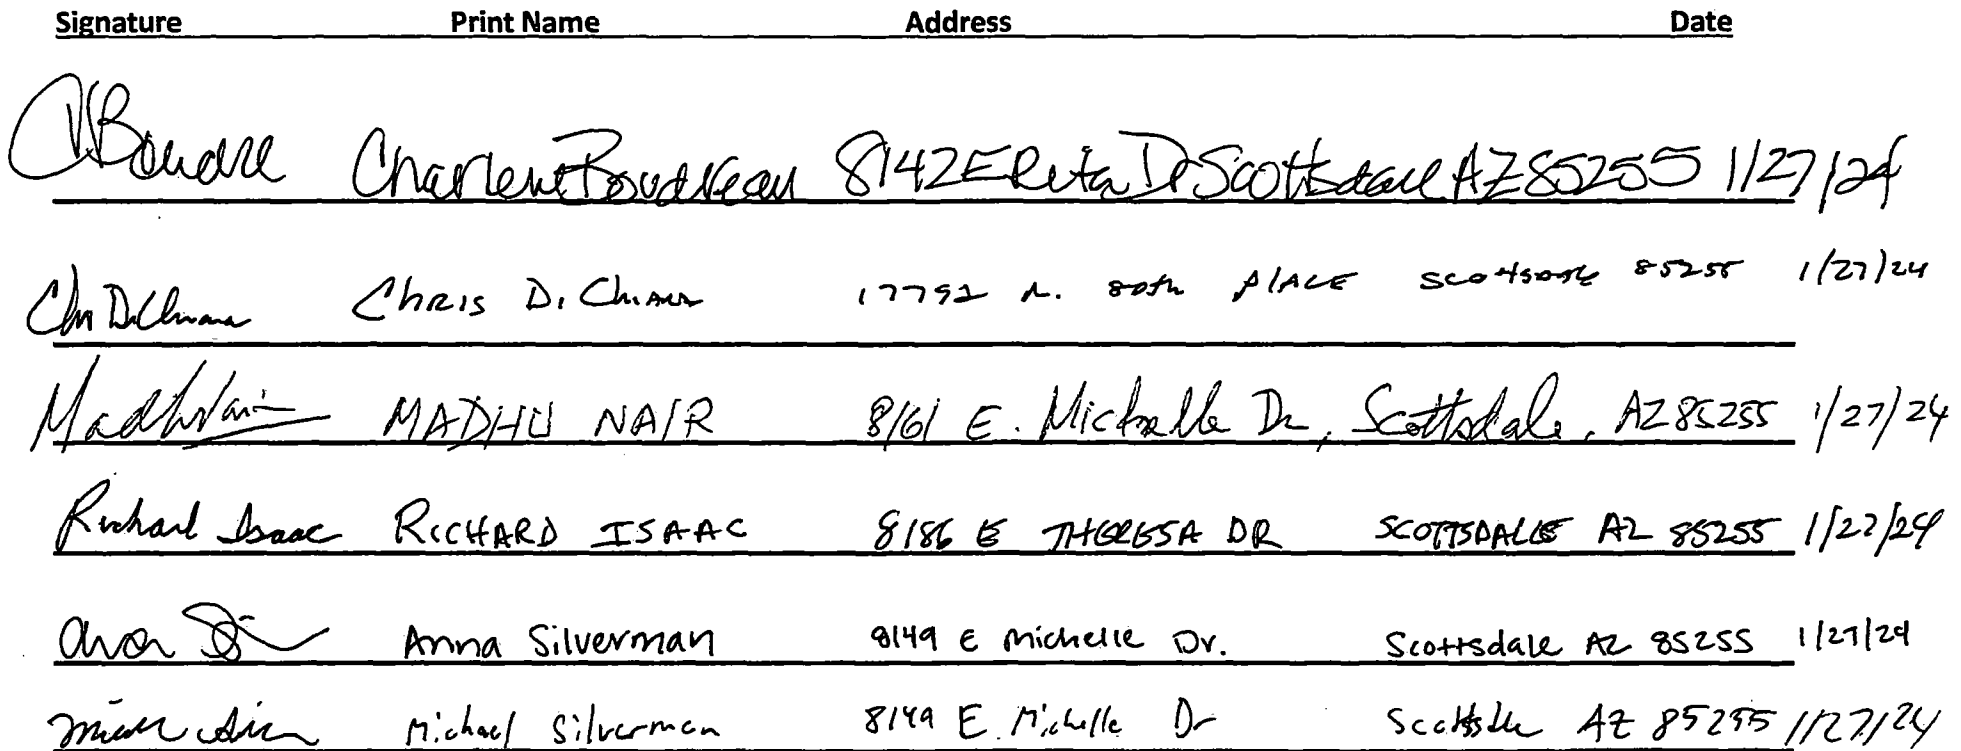 Signature Print Name Address Date
CBoudre Charlene Boudreau 8142 E Rita Dr Scottsdale AZ 85255 1/27/24
Chris DiChiara 17792 N. 80th PLACE Scottsdale 85255 1/27/24
Madhu Nair MADHU NAIR 8161 E. Michelle Dr, Scottsdale, AZ 85255 1/27/24
Richard Isaac RICHARD ISAAC 8186 E THERESA DR SCOTTSDALE AZ 85255 1/27/24
Anna Silverman 8149 E Michelle Dr. Scottsdale AZ 85255 1/27/24
Michael Silverman 8149 E. Michelle Dr Scottsdale AZ 85255 1/27/24